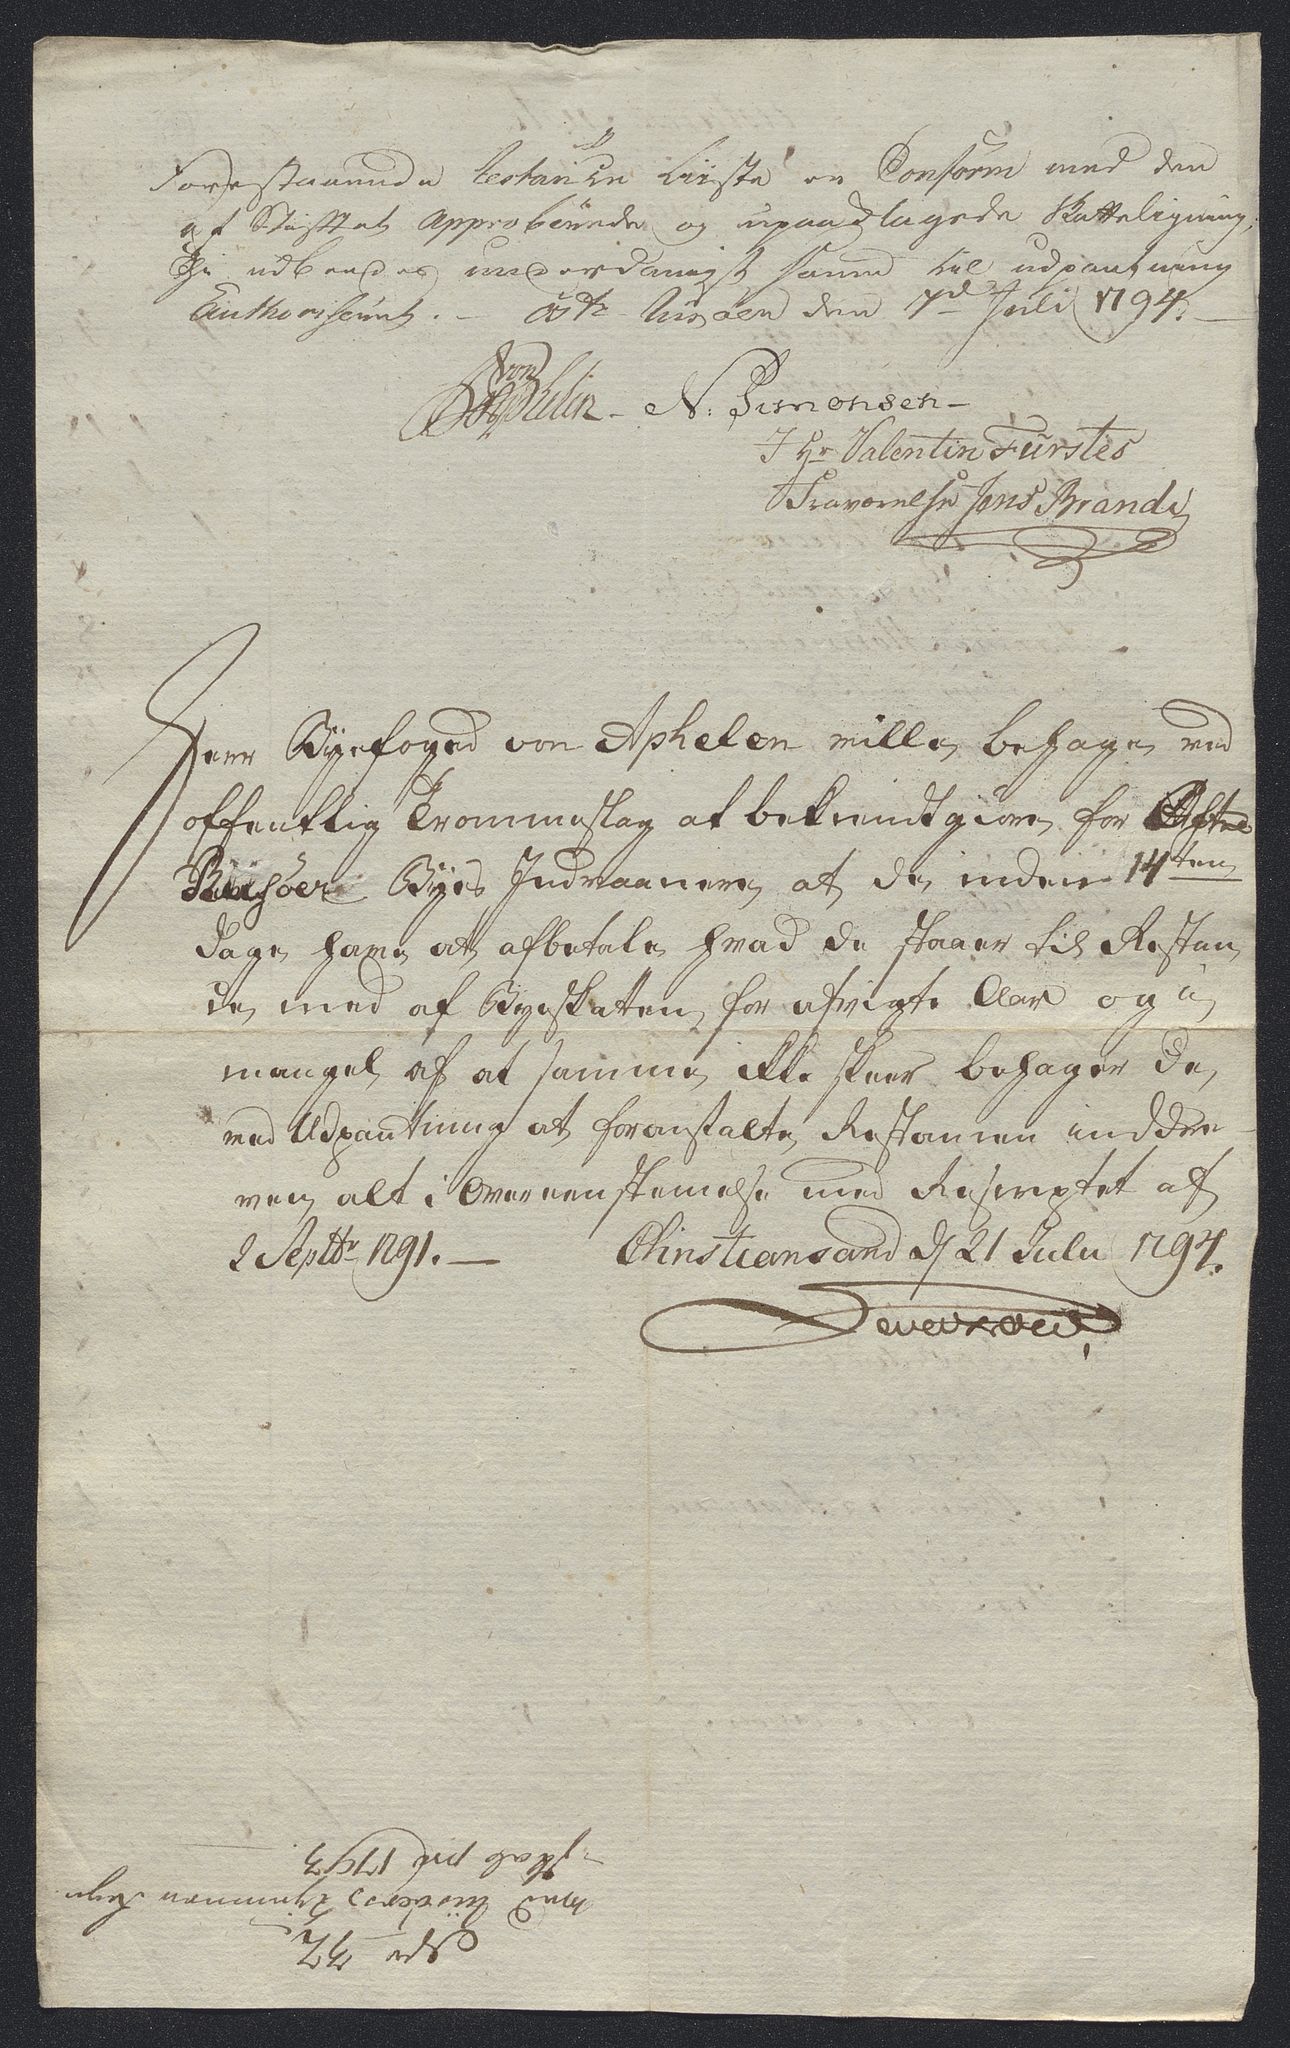 Forestaaende Restance Liste er Conform med den
af Stiftet approberede og upaaklagede Skatteligning,
thi udbeedes underdanigst samme til udpantning
Authoriseret. – Øst Riisöer den 7d Juli 1794. –
von Aphelen – N: Simonsen –
I Hr Valentin Fürstes
Fraværelse Jens Brandt
Herr Byefoged von Aphelen ville behage ved
offentlig Trommeslag at bekiendtgiøre for Øster
Riisöer Byes Indvaanere at de inden 14ten
Dage have at afbetale hvad de staaer til Restan
ce med af Byeskatten for afvigte Aar og i
mangel af at samme ikke skeer behager De
ved Udpantning at foranstalte Restancen inddre-
ven alt i Overeenstemelse med Rescriptet af
2 Septbr 1791. – Christiansand d 21 Julii 1794.
No 32
med Riisöers
skab pro 1793